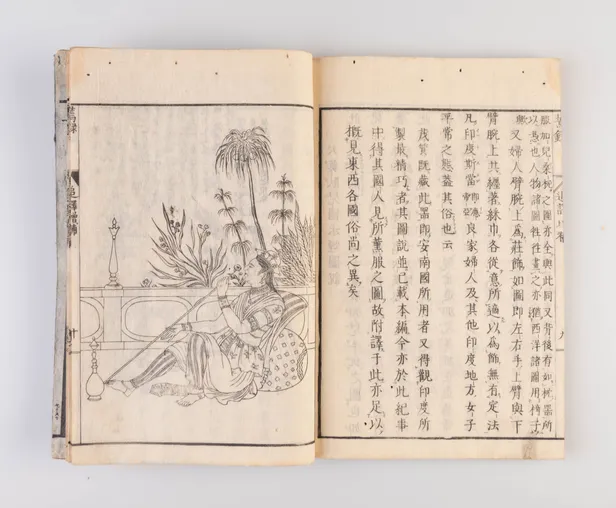 服加兒來抗之圖亦全與此同又背後有如枕器所
以憑也人物諸圖往往畫之亦猶西洋諸圖用椅子
歟又婦人臂腕上為莊飾如圖即左右手上臂與下
臂腕上共纏著絲巾各從意所適以為飾無有定法
凡印度斯當良家婦人及其他印度地方女子
平常之態蓋其俗也云
茂質既藏此器即安南國所用者又得觀印度所
製最精巧者其圖說並已載本編今亦於此紀事
中得其國人見所薰服之圖故附譯于此亦足以
概見東西各國俗尚之異矣